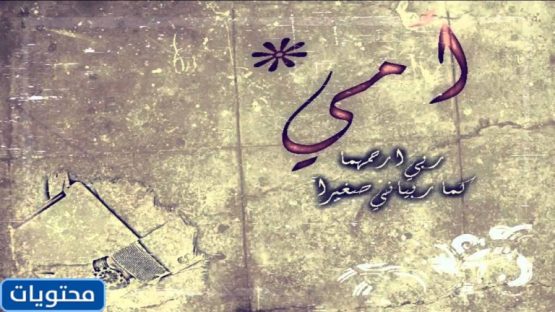 امي
ربي ارحمهما
كما ربياني صغيرا
محتويات